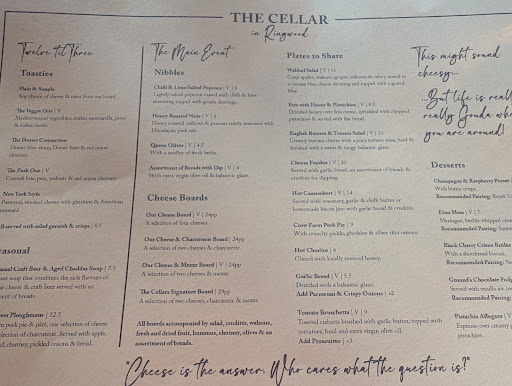 THE CELLAR
in Ringwood
Twelve til Three
Toasties
Plain & Simple
Any choice of cheese & meat from our board.
The Veggie One | V
Mediterranean vegetables, italian mozzarella, pesto
& italian herbs.
The Dorset Connection
Dorset blue vinny, Dorset ham & red onion
chutney.
The Posh One | V
Cornish brie, pear, walnuts & red onion chutney.
New York Style
Pastrami, smoked cheese with gherkins & American
mustard.
ll served with salad garnish & crisps | 9.5
easonal
Craft Beer & Aged Cheddar Soup | 7.5
soup that combines the rich flavours of
cheese & craft beer served with an
ment of breads.
Ploughmans | 12.5
pork pie & pâté, one selection of cheese
selection of charcuterie. Served with apple,
chutney, pickled onions & bread.
The Main Event
Nibbles
Chilli & Lime Salted Popcorn | V | 4
Lightly salted popcorn tossed with chilli & lime
seasoning topped with gouda shavings.
Honey Roasted Nuts | V | 4
Honey roasted cashews & peanuts mildly seasoned with
Himalayan pink salt.
Queen Olives | V | 4.5
With a medley of fresh herbs.
Assortment of Breads with Dip | V | 4
With extra virgin olive oil & balsamic glaze.
Cheese Boards
Our Cheese Board | V | 24pp
A selection of four cheeses.
Our Cheese & Charcuterie Board | 24pp
A selection of two cheeses & charcuterie.
Our Cheese & Mezze Board | V | 24pp
A selection of two cheeses & mezze.
The Cellars Signature Board | 29pp
A selection of two cheeses, charcuterie & mezze.
All boards accompanied by salad, crudités, walnuts,
fresh and dried fruit, hummus, chutney, olives & an
assortment of breads.
Plates to Share
Waldorf Salad | V | 11
Crisp apples, walnuts, grapes, sultanas & celery tossed in
a creamy blue cheese dressing and topped with a gravel
blue.
Feta with Honey & Pistachios | V | 8.5
Drizzled honey over feta cheese, sprinkled with chopped
pistachios & served with flat bread.
English Burrata & Tomato Salad | V | 13
Creamy burrata cheese with a juicy tomato salsa, basil &
finished with a sweet & tangy balsamic glaze.
Cheese Fondue | V | 20
Served with garlic bread, an assortment of breads &
crudités for dipping.
Hot Camembert | V | 14
Served with rosemary, garlic & chilli butter or
homemade bacon jam with garlic bread & crudités.
Cow Farm Pork Pie | 9
With crunchy pickle, gherkins & silver skin onions.
Hot Chorizo | 6
Glazed with locally sourced honey.
Garlic Bread | V | 5.5
Drizzled with a balsamic glaze.
Add Parmesan & Crispy Onions | +2
Tomato Bruschetta | V | 9
Toasted ciabatta brushed with garlic butter, topped with
tomatoes, basil and extra virgin olive oil.
Add Prosciutto | +3
This might sound
cheesy...
...But life is reall
really Gouda whe
you are around!
Desserts
Champagne & Raspberry Posset
With butter crisps.
Recommended Pairing:
Eton Mess | V | 7
Meringue, freshly whipped cream
Recommended Pairing:
Black Cherry Crème Brûlée
With a shortbread biscuit.
Recommended Pairing:
Ground's Chocolate Fudge
Served with vanilla ice cre
Recommended Pairing:
Pistachio Affogato | V
Espresso over creamy
pistachio.
"Cheese is the answer. Who cares what the question is?"